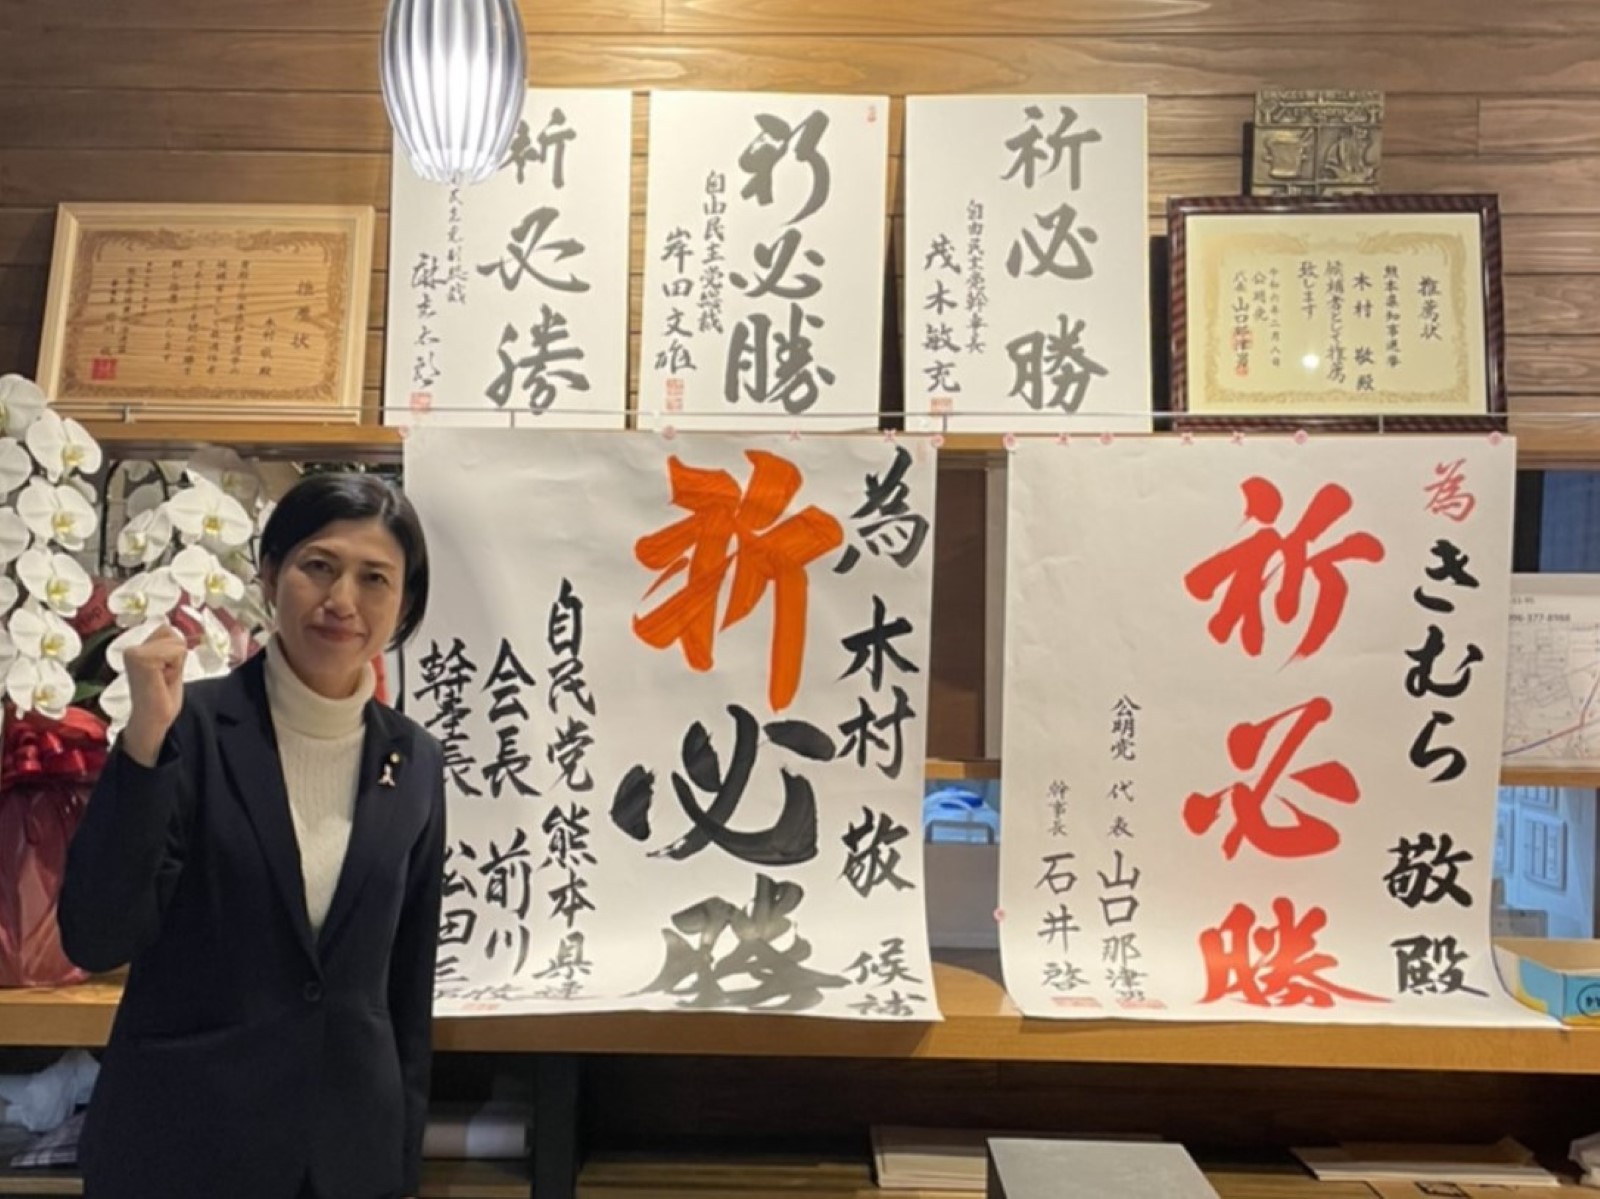 推薦状
木村 敬 殿
祈必勝
麻生太郎
祈必勝
自由民主党総裁
岸田文雄
祈必勝
自由民主党幹事長
茂木敏充
推薦状
熊本県知事選挙
木村 敬 殿
候補者として推薦
致します
令和六年二月八日
公明党
代表 山口那津男
為 木村 敬 候補
祈必勝
自民党熊本県連
会長 前川
幹事長 松田三
為 きむら 敬 殿
祈必勝
公明党 代表 山口那津男
幹事長 石井啓
096-377-8988